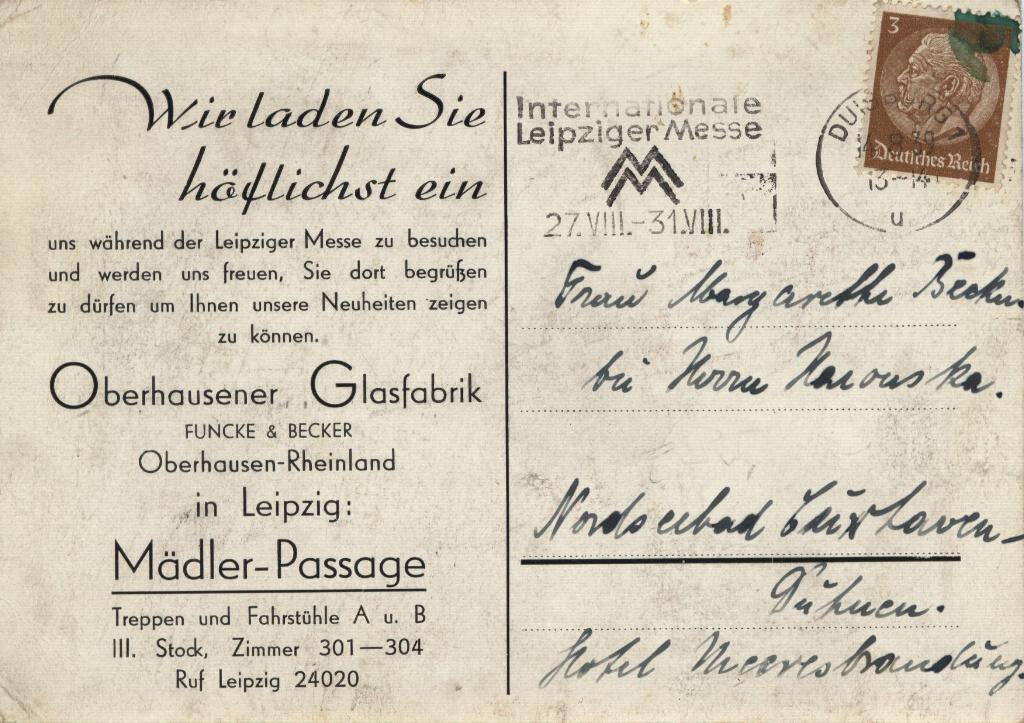 Wir laden Sie
höflichst ein
uns während der Leipziger Messe zu besuchen
und werden uns freuen, Sie dort begrüßen
zu dürfen um Ihnen unsere Neuheiten zeigen
zu können.
Oberhausener Glasfabrik
FUNCKE & BECKER
Oberhausen-Rheinland
in Leipzig:
Mädler-Passage
Treppen und Fahrstühle A u. B
III. Stock, Zimmer 301—304
Ruf Leipzig 24020
Internationale
Leipziger Messe
27.VIII.–31.VIII.
3
Deutsches Reich
DUISBURG 1
13–14
u
Frau Margarethe Becker
bei Herrn
Nordseebad Cuxhaven-
Duhnen.
Hotel Meeresbrandung.